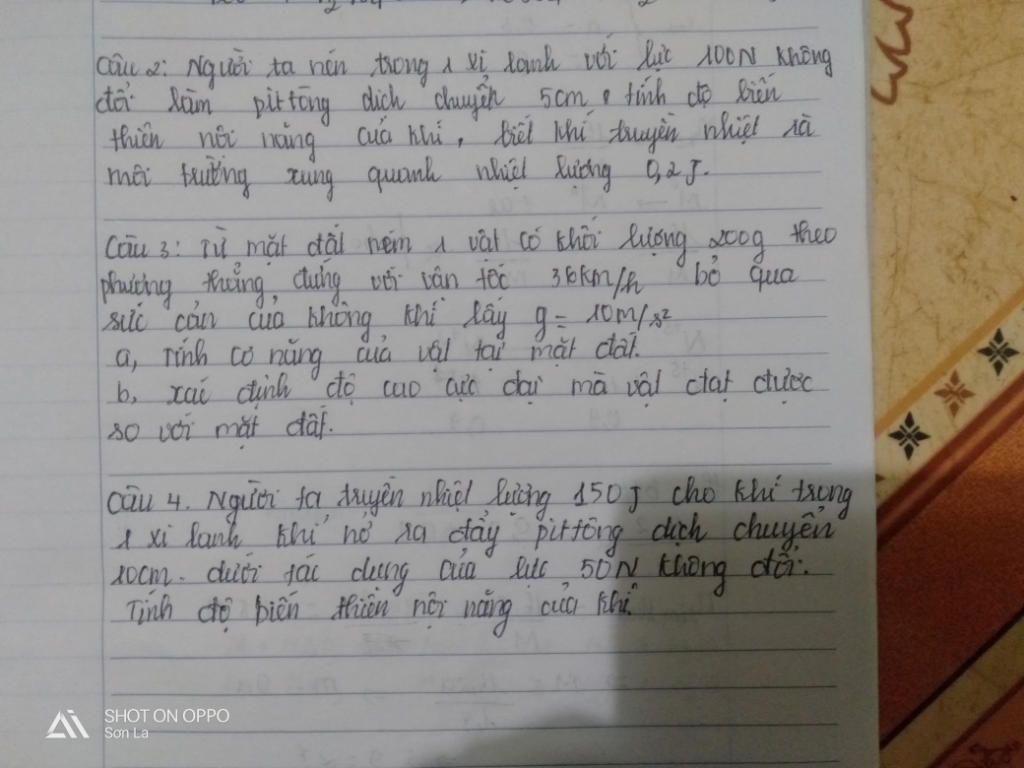 Câu 2: Người ta nén trong 1 xi lanh với lực 100N không
đổi làm pittông dịch chuyển 5cm. tính độ biến
thiên nội năng của khí, biết khí truyền nhiệt ra
môi trường xung quanh nhiệt lượng 0,2J.
Câu 3: Từ mặt đất ném 1 vật có khối lượng 200g theo
phương thẳng đứng với vân tốc 36km/h bỏ qua
sức cản của không khí lấy g = 10m/s²
a, Tính cơ năng của vật tại mặt đất.
b, xác định độ cao cực đại mà vật đạt được
so với mặt đất.
Câu 4. Người ta truyền nhiệt lượng 150J cho khí trong
1 xi lanh khí nở ra đẩy pittông dịch chuyển
10cm. dưới tác dụng của lực 50N không đổi.
Tính độ biến thiên nội năng của khí.
SHOT ON OPPO
Sơn La